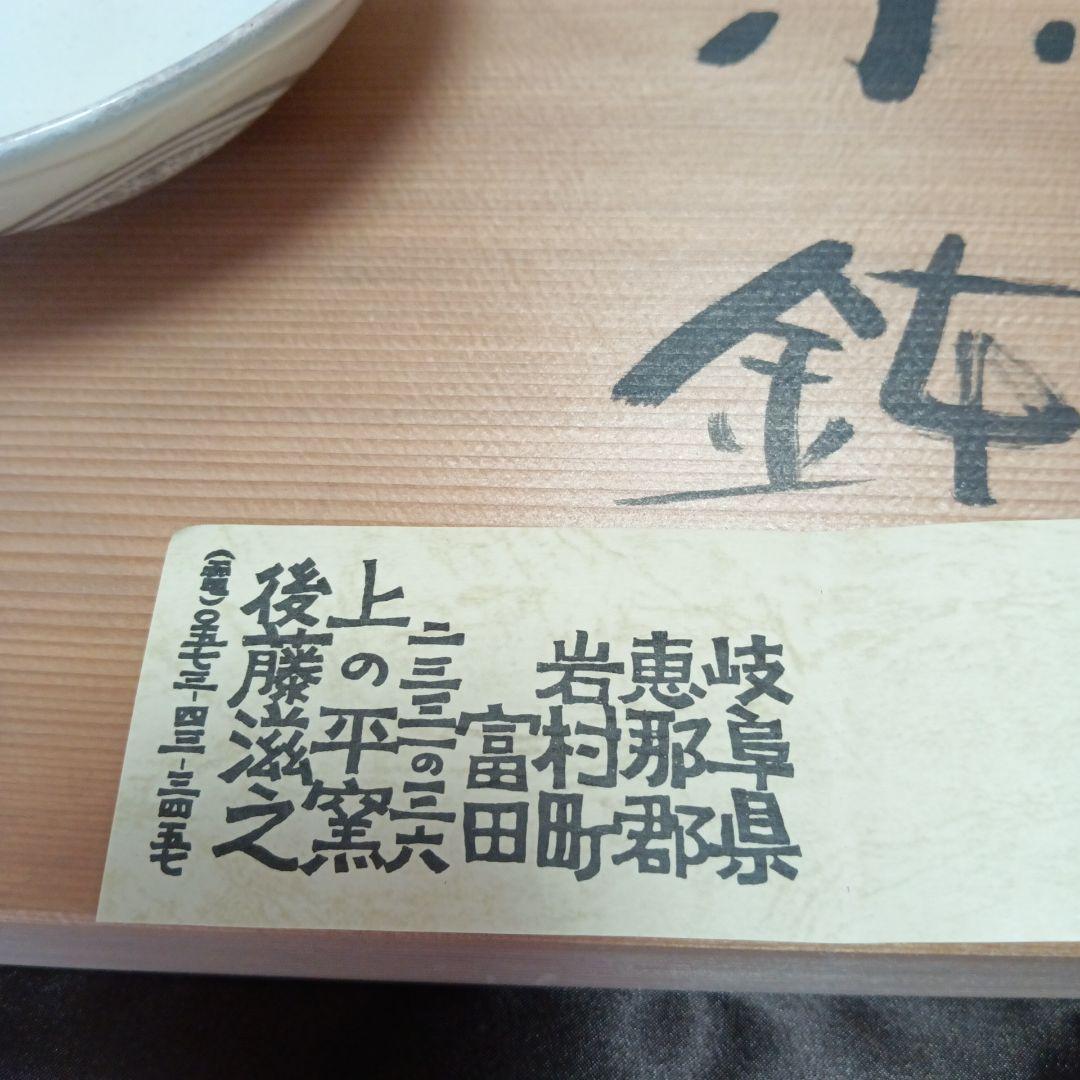 鉢
岐阜県
恵那郡
岩村町
富田
二三三三の三六
上の平窯
後藤滋之
(電)〇五七三-四三-三四五七